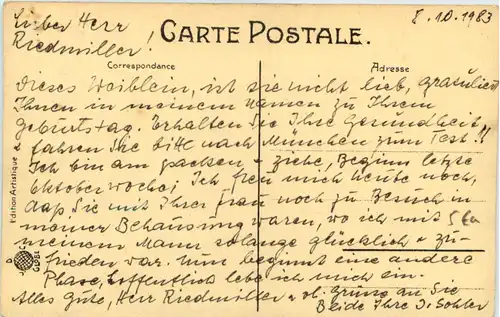 8.10.1983
Lieber Herr
Riedmiller!
CARTE POSTALE.
Correspondance
Adresse
Dieses Weiblein, ist sie nicht lieb, gratuliert
Ihnen in meinem Namen zu Ihrem
Geburtstag. Erhalten Sie Ihre Gesundheit
& fahren Sie bitte nach München zum Test!!
Ich bin am packen & ziehe, Beginn letzte
Oktoberwoche; Ich freu mich heute noch,
daß Sie mit Ihrer Frau noch zu Besuch in
meiner Behausung waren, wo ich mit
meinem Mann solange glücklich & zu-
frieden war. Nun beginnt eine andere
Phase, hoffentlich lebe ich mich ein.
Alles Gute, Herr Riedmiller & Grüße an Sie
Beide Ihre
Edition Artistique
GLOBE